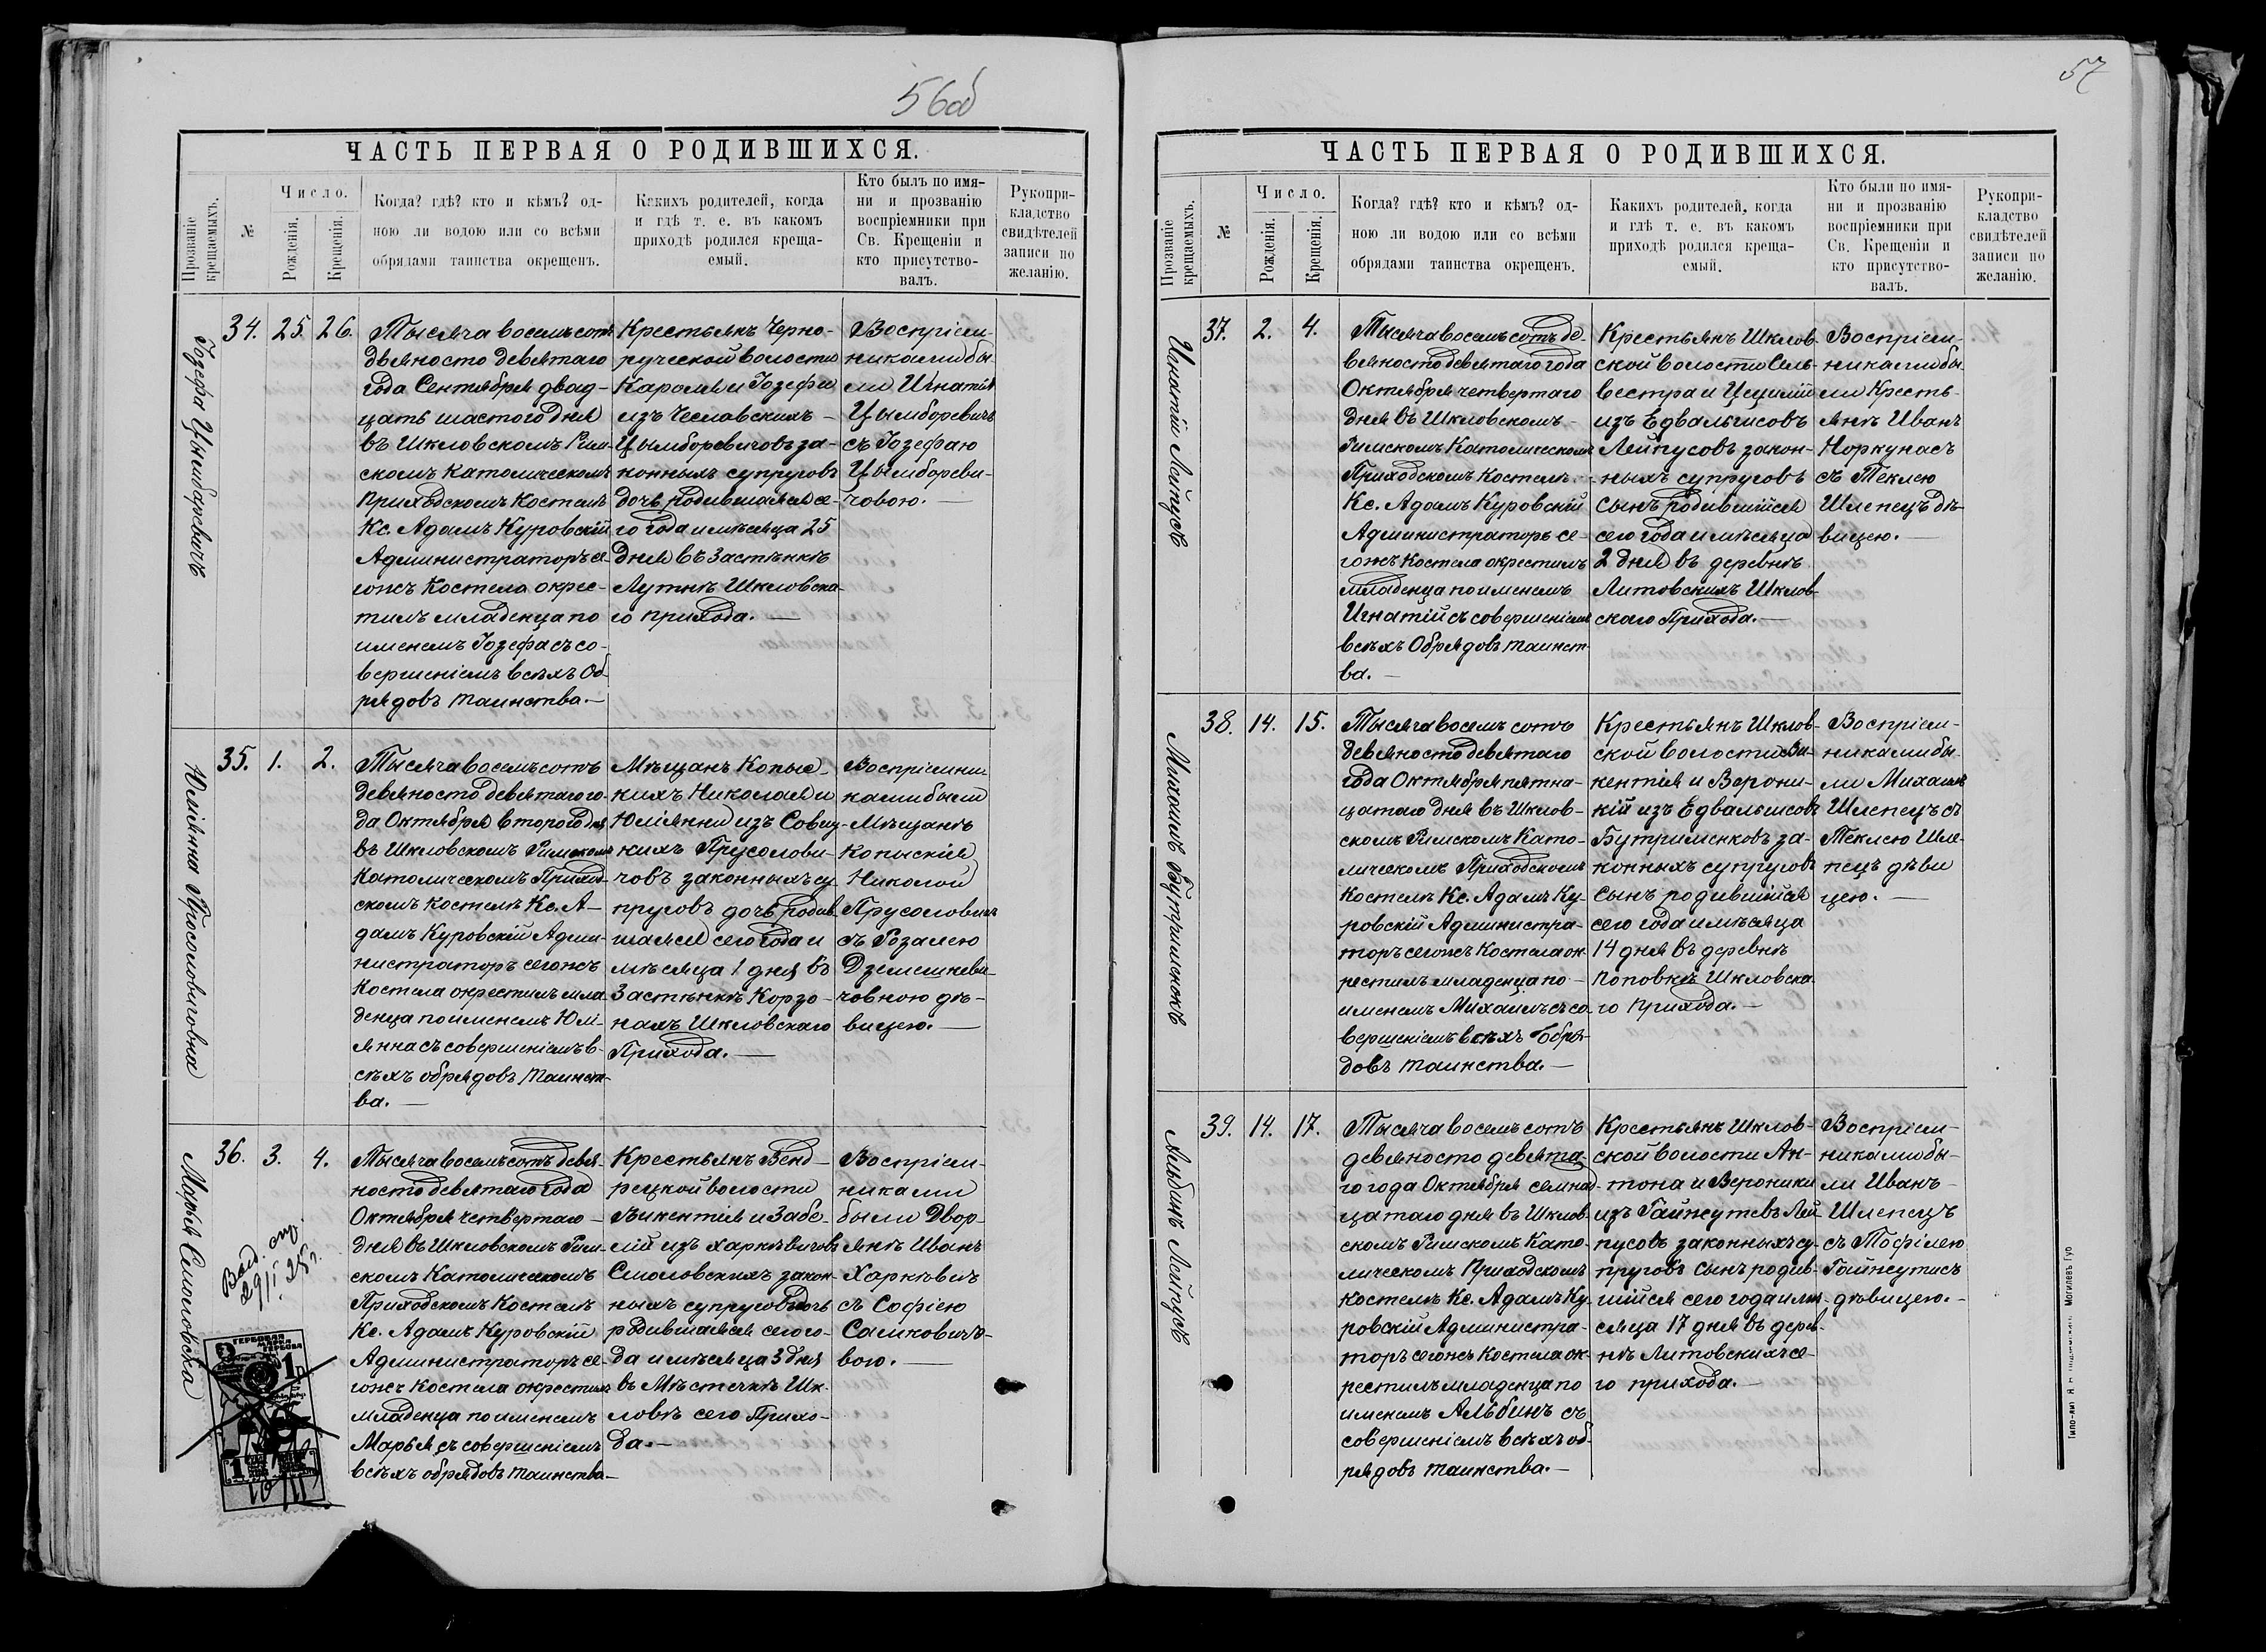 56об
ЧАСТЬ ПЕРВАЯ О РОДИВШИХСЯ.
Прозваніе крещаемыхъ.
№
Число.
Рожденія.
Крещенія.
Когда? гдѣ? кто и кѣмъ? од-
ною ли водою или со всѣми
обрядами таинства окрещенъ.
Какихъ родителей, когда
и гдѣ т. е. въ какомъ
приходѣ родился креща-
емый.
Кто былъ по имя-
ни и прозванію
воспріемники при
Св. Крещеніи и
кто присутство-
валъ.
Рукопри-
кладство
свидѣтелей
записи по
желанію.
Іозефа Цымборевичъ
34. 25. 26.
Тысяча восемьсотъ
девяносто девятаго
года Сентября двад-
цать шастого дня
въ Шкловскомъ Рим-
скомъ Католическомъ
Приходскомъ Костелѣ
Кс. Адамъ Куровскій
Администраторъ се-
гожъ Костела окрес-
тилъ младенца по
именемъ Іозефа съ со-
вершеніемъ всѣхъ Об-
рядовъ таинства.—
Крестьянъ Черно-
руческой волости
Кароля и Іозефы
изъ Чеславскихъ —
Цымборевичовъ за-
конныхъ супруговъ
дочь, родившаяся се-
го года и мѣсяца 25
дня въ Застѣнкѣ
Лутнѣ Шкловска-
го прихода.—
Воспріем-
никами бы-
ли Игнатій
Цымборевичъ
съ Іозефаю
Цымбореви-
човою.—
Юліянна Прусоловичовна
35. 1. 2.
Тысяча восемьсотъ
девяносто девятаго го-
да Октября второго дня
въ Шкловскомъ Римском
Католическомъ Приход-
скомъ Костелѣ Кс. А-
дамъ Куровскій Адми-
нистраторъ сегожъ
Костела окрестилъ мла-
денца по именемъ Юлі-
янна съ совершеніемъ в-
сѣхъ обрядовъ таинст-
ва.—
Мѣщанъ Копыс-
кихъ Николая и
Юліянны изъ Совиц-
кихъ Прусолови-
човъ законныхъ су-
пруговъ дочь, родив-
шаяся сего года и
мѣсяца 1 дня въ
Застѣнкѣ Корзо-
нахъ Шкловскаго
Прихода.—
Воспріемни-
ками были
Мѣщанѣ
Копыскія
Николай
Прусоловичъ
съ Розалею
Дземешкеви-
човною дѣ-
вицею.—
Марья Смоловска
36. 3. 4.
Выд.
Тысяча восемьсотъ девя-
носто девятаго года
Октября четвертаго —
дня въ Шкловскомъ Рим-
скомъ Католическомъ
Приходскомъ Костелѣ
Кс. Адамъ Куровскій
Администраторъ се-
гожъ Костела окрестилъ
младенца по именемъ
Марья съ совершеніемъ
всѣхъ обрядовъ таинства—
Крестьянъ Бенд-
рецкой волости
Викентія и Забе-
лій изъ Харкѣвичовъ
Смоловскихъ закон-
ныхъ супруговъ дочь
родившаяся сего го-
да и мѣсяца 3 дня
въ Мѣстечкѣ Шк-
ловѣ сего Прихо-
да.—
Воспріем-
никами
были Двор-
янѣ Иванъ
Харкѣвичъ
съ Софіею
Самковичо-
вою.—
57
ЧАСТЬ ПЕРВАЯ О РОДИВШИХСЯ.
Прозваніе крещаемыхъ.
№
Число.
Рожденія.
Крещенія.
Когда? гдѣ? кто и кѣмъ? од-
ною ли водою или со всѣми
обрядами таинства окрещенъ.
Какихъ родителей, когда
и гдѣ т. е. въ какомъ
приходѣ родился креща-
емый.
Кто были по имя-
ни и прозванію
воспріемники при
Св. Крещеніи и
кто присутство-
валъ.
Рукопри-
кладство
свидѣтелей
записи по
желанію.
Игнатій Лайпусъ
37. 2. 4.
Тысяча восемьсотъ де-
вяносто девятаго года
Октября четвертаго
дня въ Шкловскомъ
Римскомъ Католическомъ
Приходскомъ Костелѣ
Кс. Адамъ Куровскій
Администраторъ се-
гожъ Костела окрестилъ
младенца по именемъ
Игнатій съ совершеніемъ
всѣхъ Обрядовъ таинст-
ва.—
Крестьянъ Шклов-
ской волости Силь-
вестра и Цециліи
изъ Едвальисовъ
Лейпусовъ закон-
ныхъ супруговъ
Сынъ, родившійся
сего года и мѣсяца
2 дня въ деревнѣ
Литовскихъ Шклов-
скаго Прихода.—
Воспріем-
никами бы-
ли Кресть-
янѣ Иванъ
Норкунасъ
съ Теклею
Шлепецъ дѣ-
вицею.—
Михаилъ Бутрименокъ
38. 14. 15.
Тысяча восемьсотъ
девяносто девятаго
года Октября пятна-
цатаго дня въ Шклов-
скомъ Римскомъ Като-
лическомъ Приходскомъ
Костелѣ Кс. Адамъ Ку-
ровскій Администра-
торъ сегожъ Костела ок-
рестилъ младенца по-
именемъ Михаилъ съ со-
вершеніемъ всѣхъ Обря-
довъ таинства.—
Крестьянъ Шклов-
ской волости Ви-
кентія и Верони-
кій изъ Едвальисовъ
Бутрименковъ за-
конныхъ супруговъ
Сынъ родившійся
сего года и мѣсяца
14 дня въ деревнѣ
Поповкѣ Шкловска-
го Прихода.—
Воспріем-
никами бы-
ли Михаилъ
Шлепецъ съ
Теклею Шле-
пецъ дѣви
цею.—
Альбинъ Лайпусъ
39. 14. 17.
Тысяча восемьсотъ
девяносто девята-
го года Октября семнад-
цатаго дня въ Шклов-
скомъ Римскомъ Като-
лическомъ Приходскомъ
Костелѣ Кс. Адамъ Ку-
ровскій Администра-
торъ сегожъ Костела ок-
рестилъ младенца по
именемъ Альбинъ съ
совершеніемъ всѣхъ об-
рядовъ таинства.—
Крестьянъ Шклов-
ской волости Ан-
тона и Вероники
изъ Гайжутевъ Лей-
пусовъ законныхъ су-
пруговъ сынъ родив-
шійся сего года и мѣ-
сяца 17 дня въ дерев-
нѣ Литовскихъ се-
го прихода.—
Воспріем-
никами бы-
ли Иванъ
Шлепецъ
съ Тофілею
Гайжутисъ
дѣвицею.—